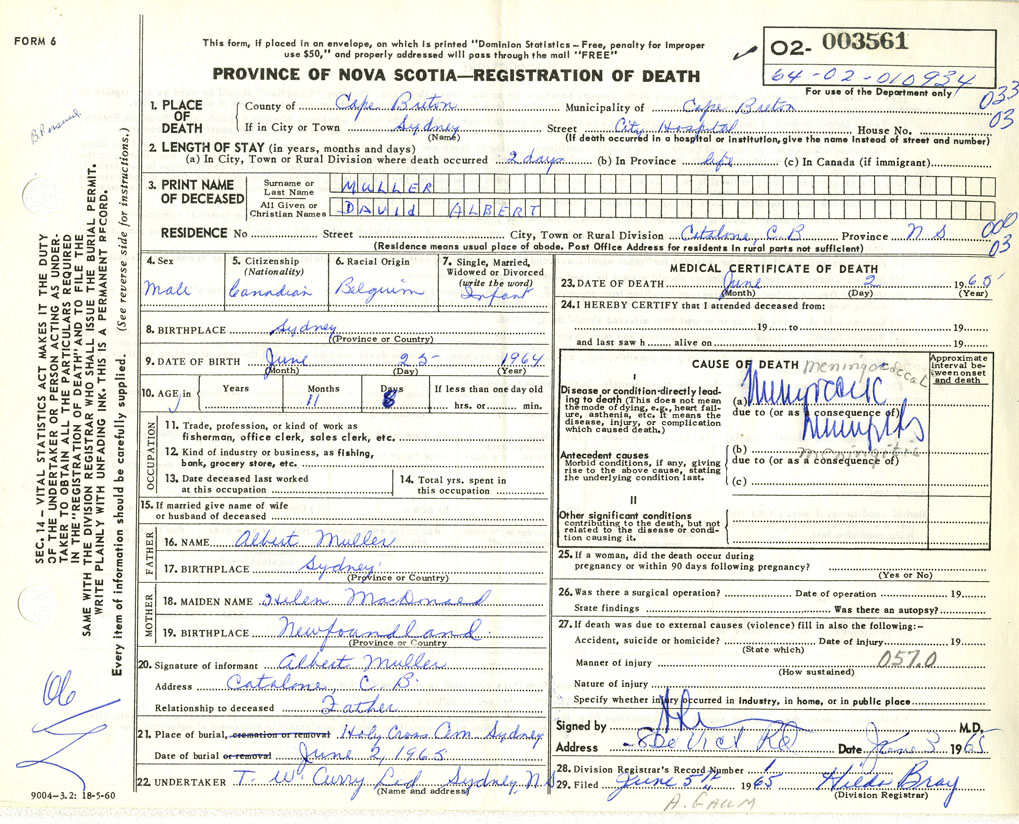 FORM 6
This form, if placed in an envelope, on which is printed "Dominion Statistics – Free, penalty for improper
use $50," and properly addressed will pass through the mail "FREE"
PROVINCE OF NOVA SCOTIA—REGISTRATION OF DEATH
O2- 003561
64-02-010934
For use of the Department only
033
03
1. PLACE OF DEATH
County of Cape Breton Municipality of Cape Breton
If in City or Town Sydney (Name) Street City Hospital House No.
(If death occurred in a hospital or institution, give the name instead of street and number)
2. LENGTH OF STAY (in years, months and days)
(a) In City, Town or Rural Division where death occurred 2 days (b) In Province life (c) In Canada (if immigrant)
3. PRINT NAME OF DECEASED
Surname or Last Name MULLER
All Given or Christian Names DAVID ALBERT
RESIDENCE No Street City, Town or Rural Division Catalone, C.B Province N S
000
03
(Residence means usual place of abode. Post Office Address for residents in rural parts not sufficient)
4. Sex
Male
5. Citizenship (Nationality)
Canadian
6. Racial Origin
Belguim
7. Single, Married, Widowed or Divorced (write the word)
Infant
8. BIRTHPLACE Sydney
(Province or Country)
9. DATE OF BIRTH June 25 1964
(Month) (Day) (Year)
10. AGE in Years Months Days If less than one day old
11 8 hrs. or min.
OCCUPATION
11. Trade, profession, or kind of work as
fisherman, office clerk, sales clerk, etc.
12. Kind of industry or business, as fishing,
bank, grocery store, etc.
13. Date deceased last worked
at this occupation
14. Total yrs. spent in
this occupation
15. If married give name of wife
or husband of deceased
FATHER
16. NAME Albert Muller
17. BIRTHPLACE Sydney
(Province or Country)
MOTHER
18. MAIDEN NAME Helen MacDonald
19. BIRTHPLACE Newfoundland
(Province or Country)
20. Signature of informant Albert Muller
Address Catalone, C B.
Relationship to deceased Father
21. Place of burial, cremation or removal Holy Cross Cem. Sydney
Date of burial or removal June 2, 1965
22. UNDERTAKER T. W. Curry Ltd Sydney, N.S
(Name and address)
MEDICAL CERTIFICATE OF DEATH
23. DATE OF DEATH June 2 1965
(Month) (Day) (Year)
24. I HEREBY CERTIFY that I attended deceased from:
19 to 19
and last saw h alive on 19
CAUSE OF DEATH
meningococcal
Approximate interval between onset and death
I
Disease or condition directly leading to death (This does not mean
the mode of dying, e.g., heart failure, asthenia, etc. It means the
disease, injury, or complication
which caused death.)
(a)
due to (or as a consequence of)
(b)
meningitis
due to (or as a consequence of)
(c)
Antecedent causes
Morbid conditions, if any, giving
rise to the above cause, stating
the underlying condition last.
II
Other significant conditions
contributing to the death, but not
related to the disease or condition causing it.
25. If a woman, did the death occur during
pregnancy or within 90 days following pregnancy?
(Yes or No)
26. Was there a surgical operation? Date of operation 19
State findings Was there an autopsy?
27. If death was due to external causes (violence) fill in also the following:-
Accident, suicide or homicide? Date of injury 19
(State which)
Manner of injury 057.0
(How sustained)
Nature of injury
Specify whether injury occurred in Industry, in home, or in public place
Signed by M.D.
Address Date June 3 1965
28. Division Registrar's Record Number 1
29. Filed June 5th 1965 Hilda Bray
(Division Registrar)
SEC. 14 – VITAL STATISTICS ACT MAKES IT THE DUTY
OF THE UNDERTAKER OR PERSON ACTING AS UNDER-
TAKER TO OBTAIN ALL THE PARTICULARS REQUIRED
IN THE "REGISTRATION OF DEATH" AND TO FILE THE
SAME WITH THE DIVISION REGISTRAR WHO SHALL ISSUE THE BURIAL PERMIT.
WRITE PLAINLY WITH UNFADING INK. THIS IS A PERMANENT RECORD.
Every item of information should be carefully supplied. (See reverse side for instructions.)
06
9004-3.2: 18-5-60